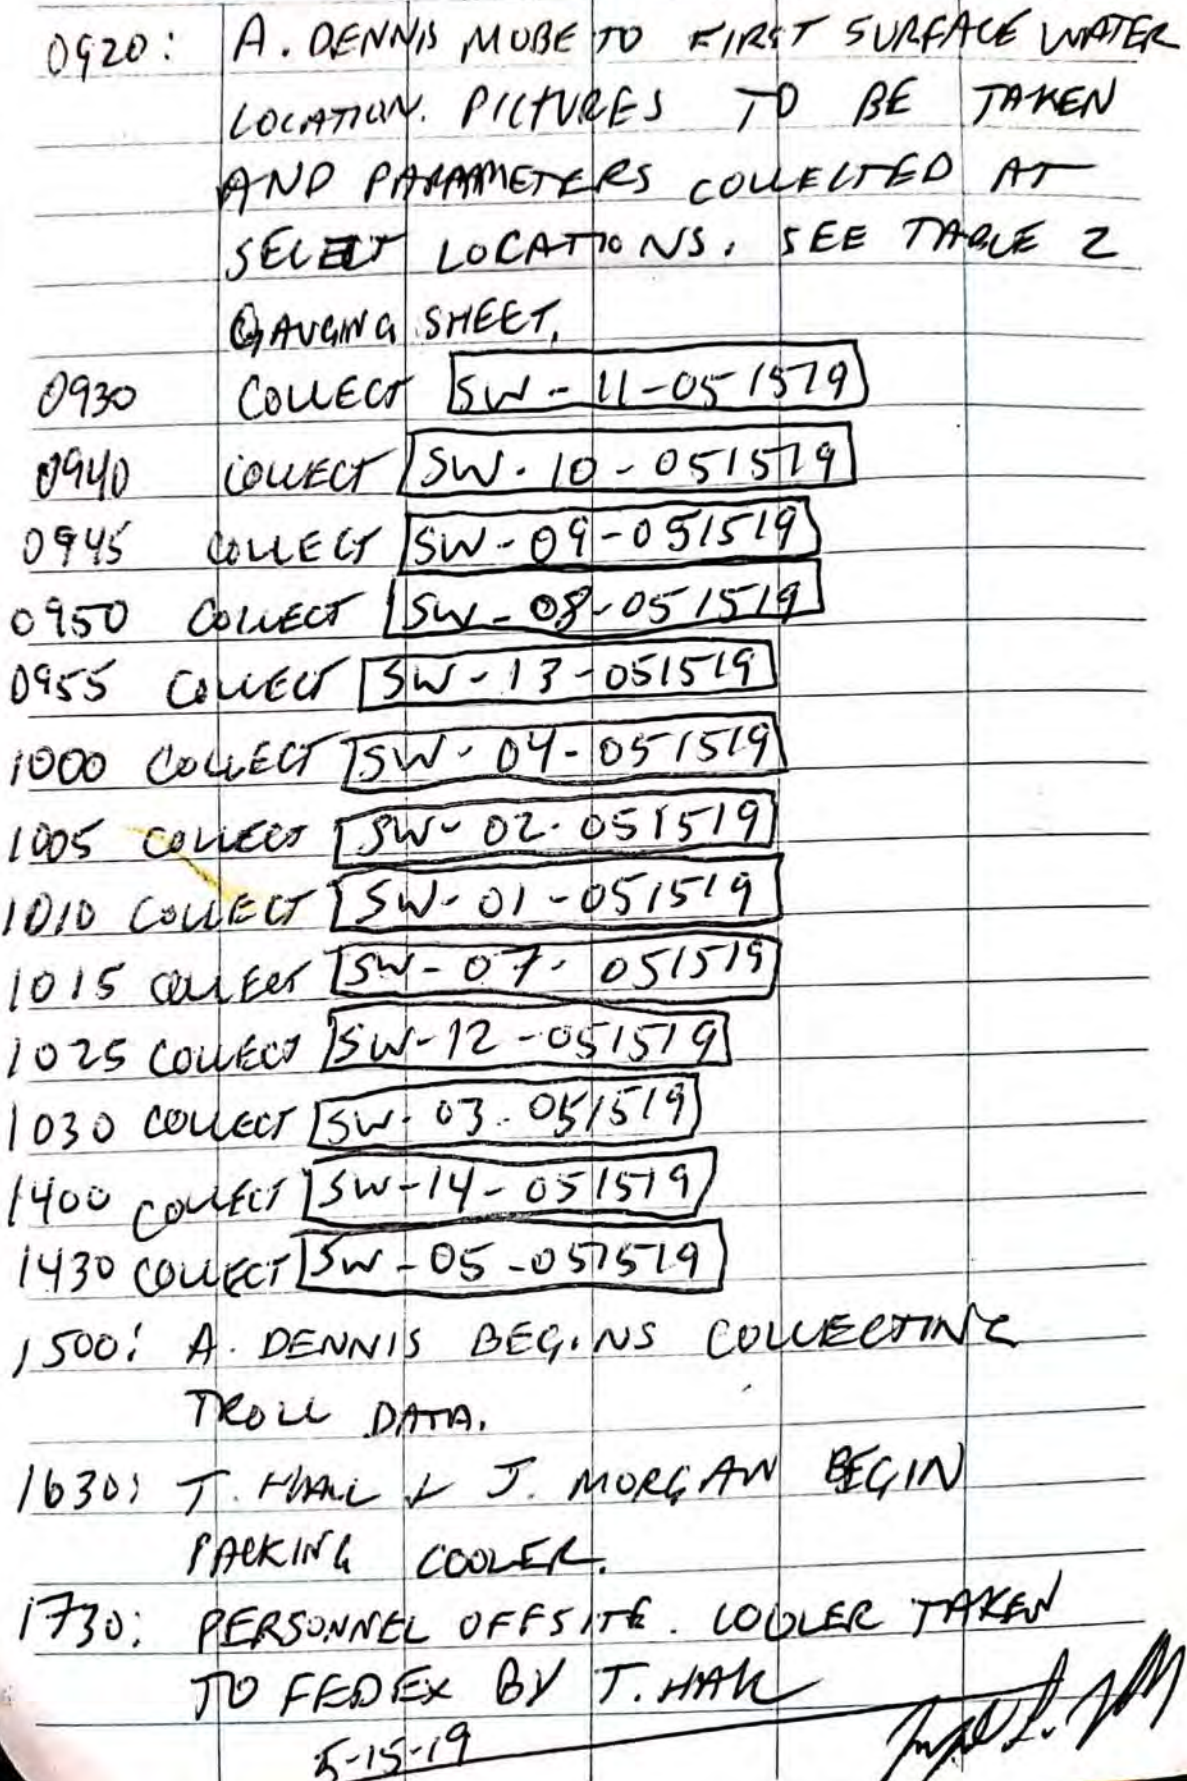 0920: A. DENNIS MOBE TO FIRST SURFACE WATER
LOCATION. PICTURES TO BE TAKEN
AND PARAMETERS COLLECTED AT
SELECT LOCATIONS. SEE TABLE 2
GAUGING SHEET.
0930 COLLECT SW-11-051519
0940 COLLECT SW-10-051519
0945 COLLECT SW-09-051519
0950 COLLECT SW-08-051519
0955 COLLECT SW-13-051519
1000 COLLECT SW-04-051519
1005 COLLECT SW-02-051519
1010 COLLECT SW-01-051519
1015 COLLECT SW-07-051519
1025 COLLECT SW-12-051519
1030 COLLECT SW-03-051519
1400 COLLECT SW-14-051519
1430 COLLECT SW-05-051519
1500: A. DENNIS BEGINS COLLECTING
TROLL DATA.
1630: T. HALL & J. MORGAN BEGIN
PACKING COOLER.
1730: PERSONNEL OFFSITE. COOLER TAKEN
TO FEDEX BY T. HALL
5-15-19